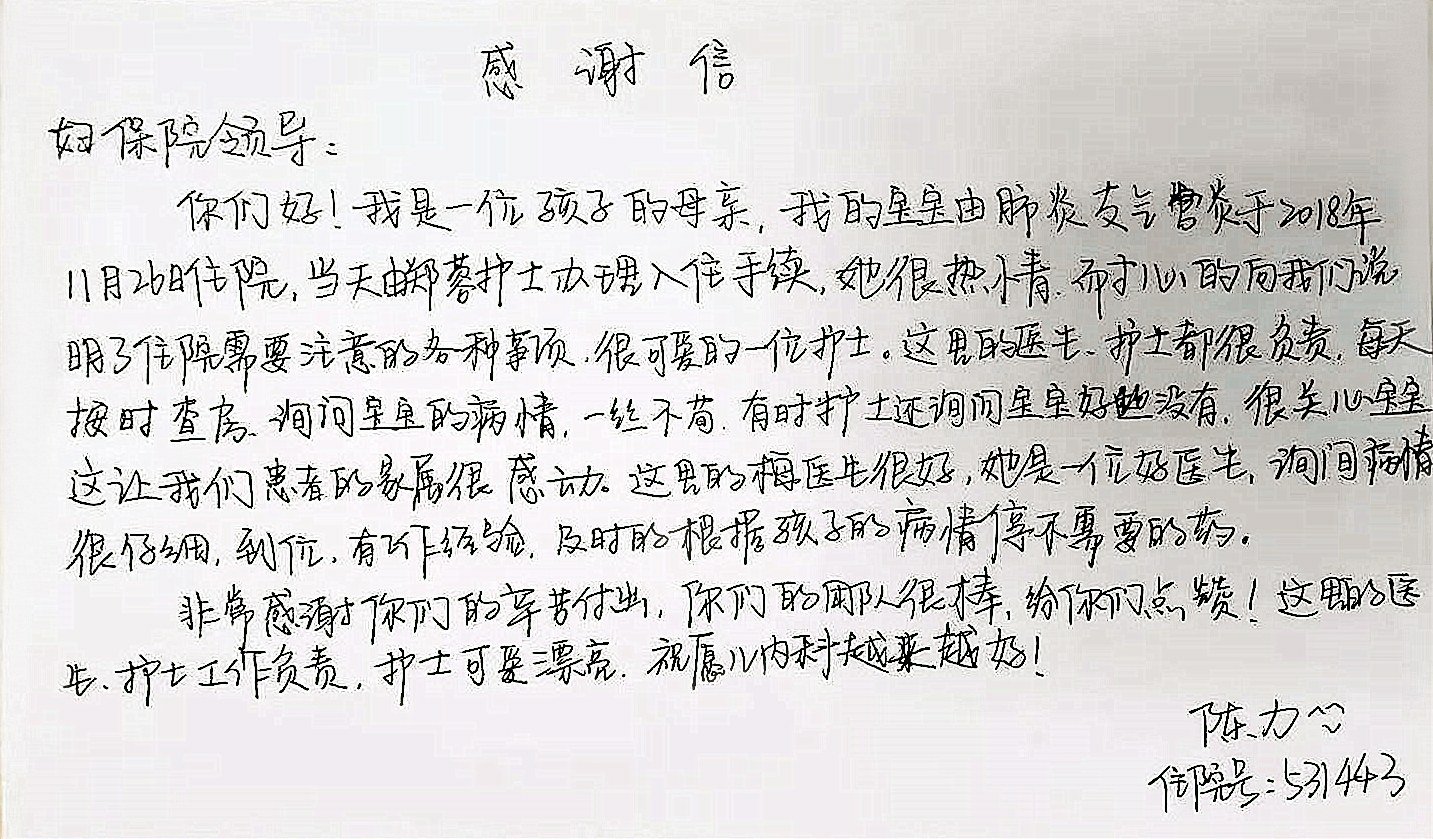 感谢信
妇保院领导：
你们好！我是一位孩子的母亲，我的宝宝由肺炎支气管炎于2018年
11月26日住院，当天由郑蓉护士办理入住手续，她很热情、耐心的向我们说
明了住院需要注意的各种事项，很可爱的一位护士。这里的医生、护士都很负责，每天
按时查房、询问宝宝的病情，一丝不苟，有时护士还询问宝宝好些没有，很关心宝宝
这让我们患者的家属很感动。这里的梅医生很好，她是一位好医生，询问病情
很仔细，到位，有工作经验，及时的根据孩子的病情停不需要的药。
非常感谢你们的辛苦付出，你们的团队很棒，给你们点赞！这里的医
生、护士工作负责，护士可爱漂亮．祝愿儿内科越来越好！
陈力
住院号：531443